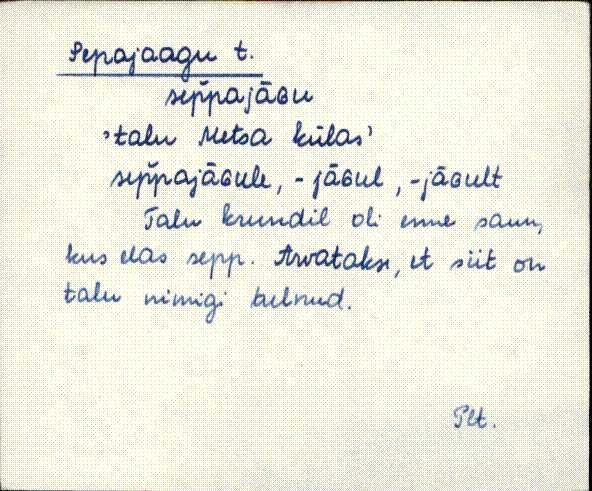 Sepajaagu t.
sep̆pajāGu
'talu Metsa külas'
sep̆pajāGule, -jāGul, -jāGult
Talu krundil oli enne saun,
kus elas sepp. Arvatakse, et siit on
talu nimigi tulnud.
Plt.